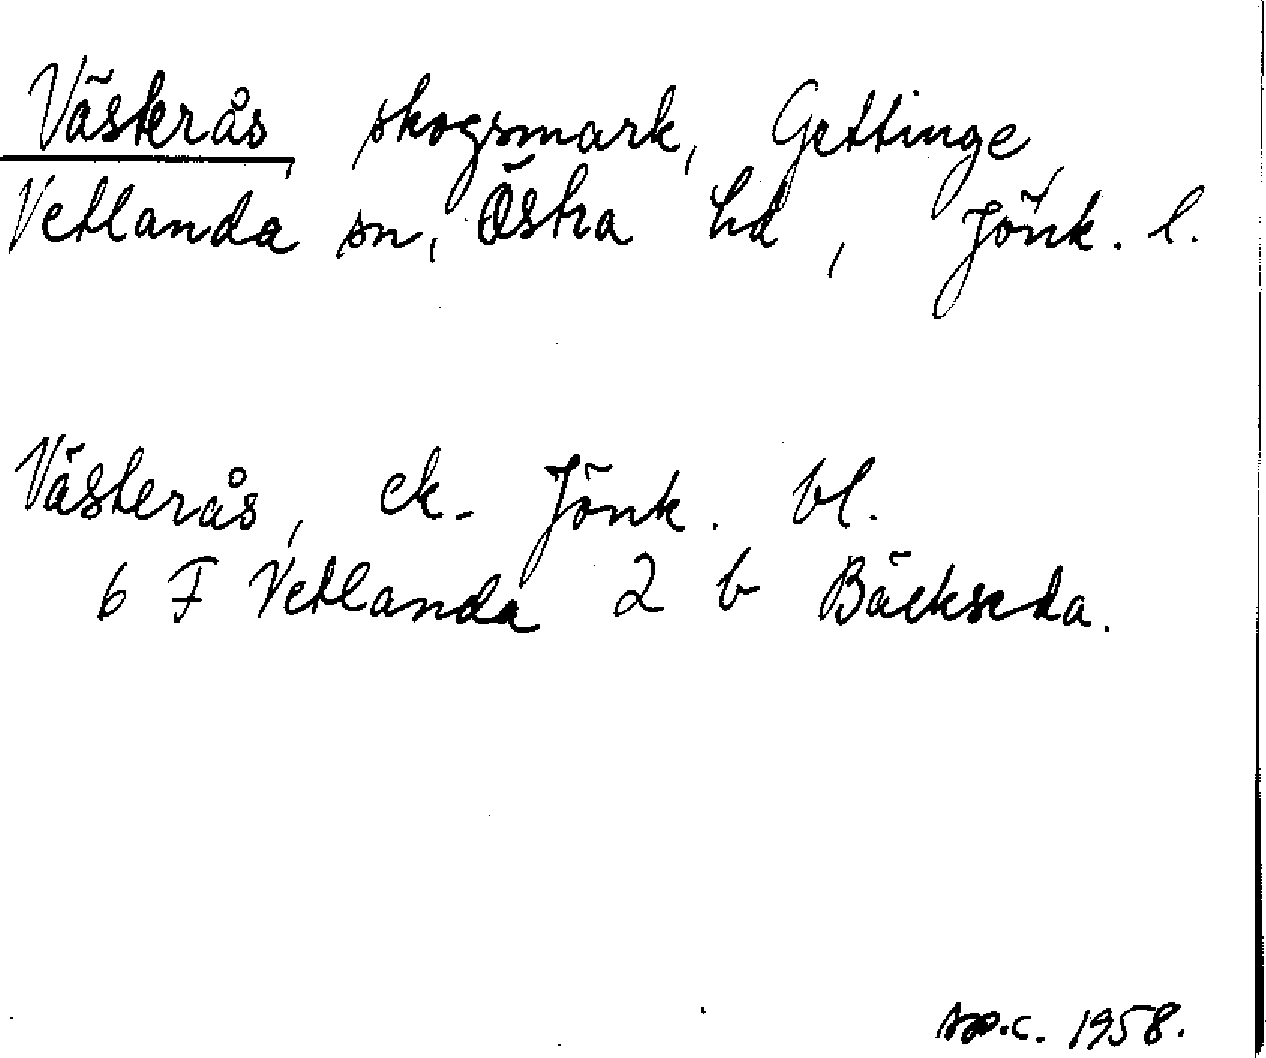 Västerås, skogsmark, Gettinge,
Vetlanda sn, Östra hd, Jönk. l.
Västerås, ek. Jönk. bl.
6 F Vetlanda 2 b Bäckseda.
1958.